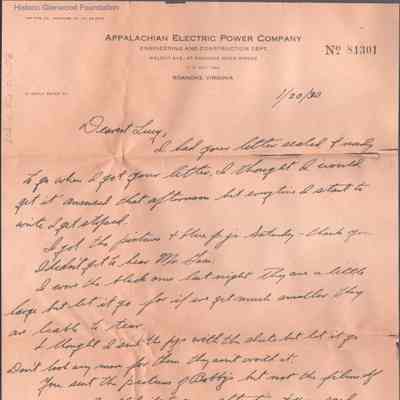 Historic Glenwood Foundation
APPALACHIAN ELECTRIC POWER COMPANY
ENGINEERING AND CONSTRUCTION DEPT.
WALNUT AVE. AT ROANOKE RIVER BRIDGE
ROANOKE, VIRGINIA
No 81301
IN REPLY REFER TO
1/20/33
Dearest Lucy,
I had your letter sealed & ready
to go when I got your letter. I thought I would
get it answered that afternoon but everytime I start to
write I get stopped.
I got the pictures & blue pjs Saturday - thank you
I didn't get to hear Mr
I wore the black ones last night They are a little
large but let it go for if we get much smaller they
are liable to tear.
I thought I sent the pjs with the shirts but let it go
Don't look any more for them they aint worth it.
You sent the pictures of Bobby's but not the films of